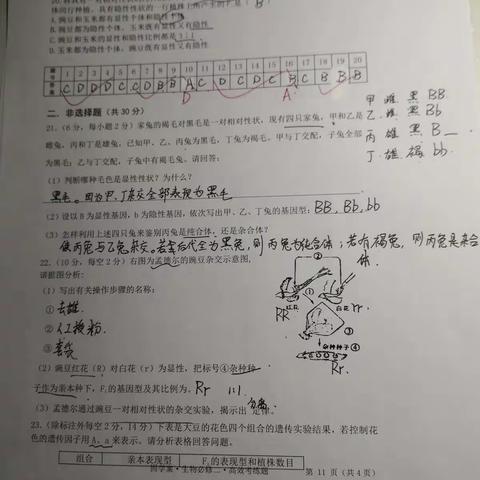 间行种植，具有隐性性状的一行植株上所产生的F₁是（B）
A.豌豆和玉米都有显性个体和隐性个体
B.豌豆都为隐性个体，玉米既有显性又有隐性
C.豌豆和玉米的显性和隐性比例都是3:1
D.玉米都为隐性个体，豌豆既有显性又有隐性
题号 1 2 3 4 5 6 7 8 9 10 11 12 13 14 15 16 17 18 19 20
D A.
二、非选择题（共30分）
21.（6分，每小题2分）家兔的褐毛对黑毛是一对相对性状，现有四只家兔，甲和乙是
雌兔，丙和丁是雄兔，已知甲、乙、丙兔为黑毛，丁兔为褐毛。甲与丁交配，子兔全部
为黑毛；乙与丁交配，子兔中有褐毛兔。请回答：
甲 雌 黑 BB
乙 雌 黑 Bb
丙 雄 黑 B_
丁 雄 褐 bb.
（1）判断哪种毛色是显性性状？为什么？
黑毛。因为甲、丁杂交全部表现为黑毛
（2）设以B为显性基因，b为隐性基因，依次写出甲、乙、丁兔的基因型：BB、Bb、bb
（3）怎样利用上述四只兔来鉴别丙兔是纯合体，还是杂合体？
使丙兔与乙兔杂交。若后代全为黑兔，则丙兔为纯合体；若有褐兔，则丙兔是杂合
体.
22.（10分，每空2分）右图为孟德尔的豌豆杂交示意图，
请据图分析：
（1）写出有关操作步骤的名称：
①去雄.
②人工授粉.
③套袋
② ① ③
RR 红花 白花 rr.
杂种种子④
Rr
（2）豌豆红花（R）对白花（r）为显性，把标号④杂种种
子作为亲本种下，F₁的基因型及其比例为。Rr 1:1
（3）孟德尔通过豌豆一对相对性状的杂交实验，揭示出分离定律。
23.（除标注外每空2分，14分）下表是大豆的花色四个组合的遗传实验结果，若控制花
色的遗传因子用A、a来表示。请分析表格回答问题。
组合 亲本表现型 F₁的表现型和植株数目
同学案·生物必修二·高效考练题 第 11 页（共 4 页）